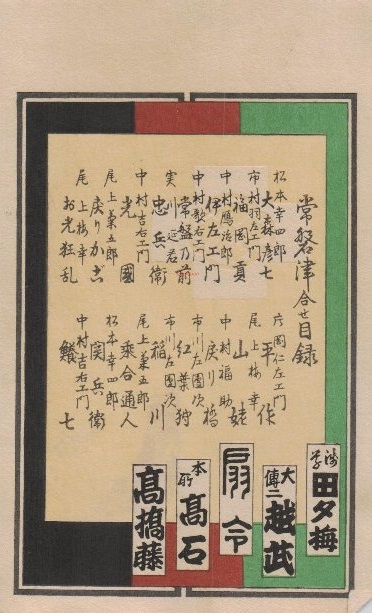 常磐津合せ目録
松本幸四郎
大森彦七
市村羽左エ門
福岡貢
中村鴈治郎
伊左エ門
中村歌右エ門
常盤乃前
実川延若
忠兵衛
中村吉右エ門
光國
尾上菊五郎
戻りかご
尾上梅幸
お光狂乱
片岡仁左エ門
平作
尾上梅幸
山姥
中村福助
戻り橋
市川左團次
紅葉狩
市川左團次
稲川
尾上菊五郎
乗合通人
松本幸四郎
関兵衛
中村吉右エ門
鱶七
田夕梅
大傳二
越武
扇令
本所
高石
高橋藤